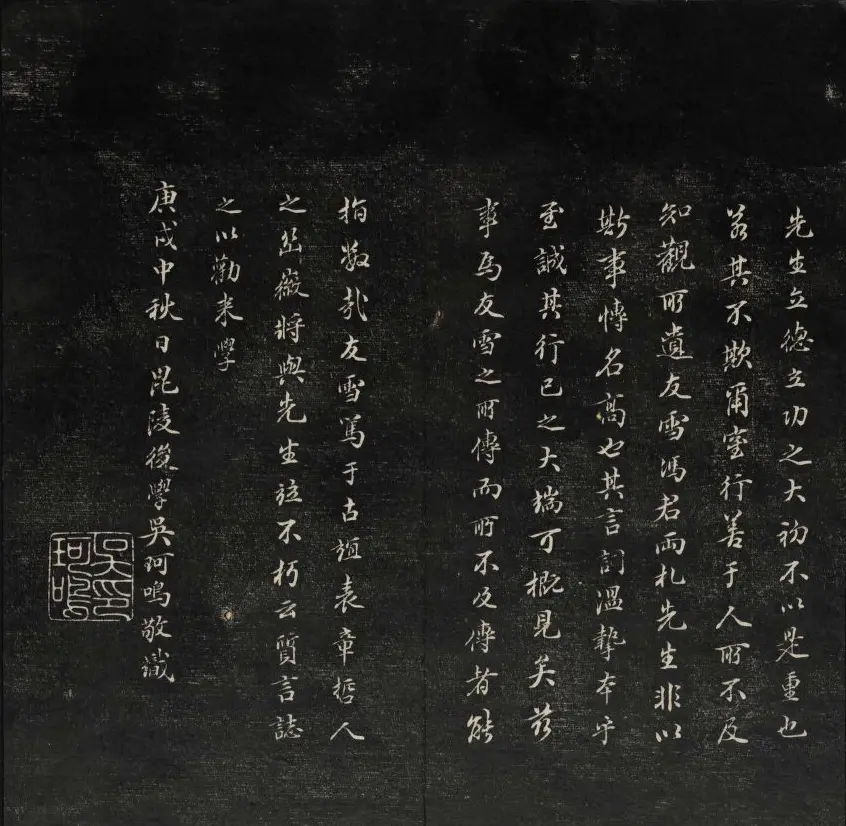 先生立德立功之大初不以是重也
若其不欺爾室行善于人所不及
知觀所遺友雪馮君兩札先生非以
斯事博名高也其言詞溫摯本乎
至誠其行己之大端可概見矣茲
事為友雪之所傳而所不及傳者能
指數哉友雪篤于古誼表章哲人
之幽微將與先生竝不朽云質言誌
之以勸來學
庚戌中秋日毘陵後學吳珂鳴敬識
吳印珂鳴